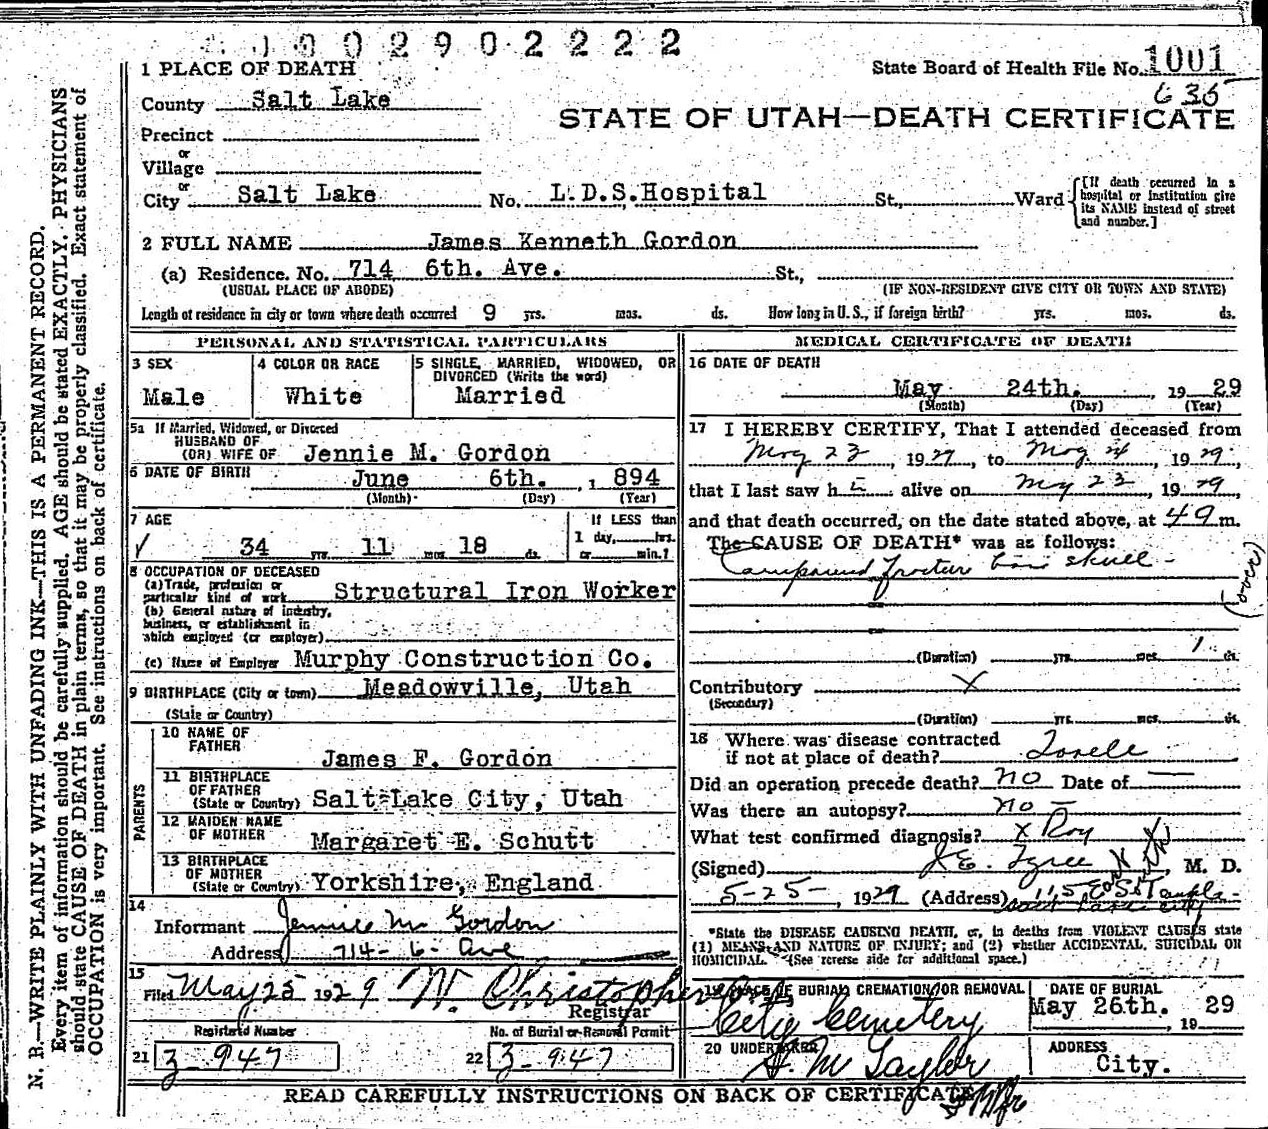 0 0 2 9 0 2 2 2 2
1 PLACE OF DEATH
State Board of Health File No. 1001
County Salt Lake
635
STATE OF UTAH—DEATH CERTIFICATE
Precinct
or
Village
or
City Salt Lake No. L.D.S. Hospital St., Ward
[If death occurred in a hospital or institution give its NAME instead of street and number.]
2 FULL NAME James Kenneth Gordon
(a) Residence. No. 714 6th. Ave. St.,
(USUAL PLACE OF ABODE) (IF NON-RESIDENT GIVE CITY OR TOWN AND STATE)
Length of residence in city or town where death occurred 9 yrs. mos. ds. How long in U. S., if foreign birth? yrs. mos. ds.
PERSONAL AND STATISTICAL PARTICULARS
3 SEX
Male
4 COLOR OR RACE
White
5 SINGLE, MARRIED, WIDOWED, OR
DIVORCED (Write the word)
Married
5a If Married, Widowed, or Divorced
HUSBAND OF
(OR) WIFE OF Jennie M. Gordon
6 DATE OF BIRTH June 6th. , 1 894
(Month) (Day) (Year)
7 AGE
34 yrs. 11 mos. 18 ds.
If LESS than
1 day, hrs.
or min.?
8 OCCUPATION OF DECEASED
(a) Trade, profession or
particular kind of work Structural Iron Worker
(b) General nature of industry,
business, or establishment in
which employed (or employer)
(c) Name of Employer Murphy Construction Co.
9 BIRTHPLACE (City or town) Meadowville, Utah
(State or Country)
PARENTS
10 NAME OF
FATHER
James F. Gordon
11 BIRTHPLACE
OF FATHER
(State or Country) Salt Lake City, Utah
12 MAIDEN NAME
OF MOTHER
Margaret E. Schutt
13 BIRTHPLACE
OF MOTHER
(State or Country) Yorkshire, England
14
Informant Jennie M Gordon
Address 714-6-Ave
15
Filed May 25 1929 W. Christopherson
Registrar
Registered Number
21 3-947
No. of Burial or Removal Permit
22 3-947
MEDICAL CERTIFICATE OF DEATH
16 DATE OF DEATH
May 24th. , 19 29
(Month) (Day) (Year)
17 I HEREBY CERTIFY, That I attended deceased from
May 23, 1929, to May 24, 1929,
that I last saw h alive on May 23, 1929,
and that death occurred, on the date stated above, at m.
The CAUSE OF DEATH* was as follows:
Compound fracture skull
(over)
(Duration) yrs. mos. 1 ds.
Contributory X
(Secondary)
(Duration) yrs. mos. ds.
18 Where was disease contracted
if not at place of death? Tooele
Did an operation precede death? no Date of —
Was there an autopsy? no
What test confirmed diagnosis? X Ray
(Signed) J E. Tyree M. D.
5-25-, 1929 (Address) 115 E So Temple
Salt Lake City
*State the DISEASE CAUSING DEATH, or, in deaths from VIOLENT CAUSES state
(1) MEANS AND NATURE OF INJURY; and (2) whether ACCIDENTAL, SUICIDAL OR
HOMICIDAL. (See reverse side for additional space.)
19 PLACE OF BURIAL CREMATION OR REMOVAL
City Cemetery
DATE OF BURIAL
May 26th. , 19 29
20 UNDERTAKER
S. M Taylor
ADDRESS
City.
READ CAREFULLY INSTRUCTIONS ON BACK OF CERTIFICATE
N. B.—WRITE PLAINLY WITH UNFADING INK—THIS IS A PERMANENT RECORD.
Every item of information should be carefully supplied. AGE should be stated EXACTLY. PHYSICIANS
should state CAUSE OF DEATH in plain terms, so that it may be properly classified. Exact statement of
OCCUPATION is very important. See instructions on back of certificate.